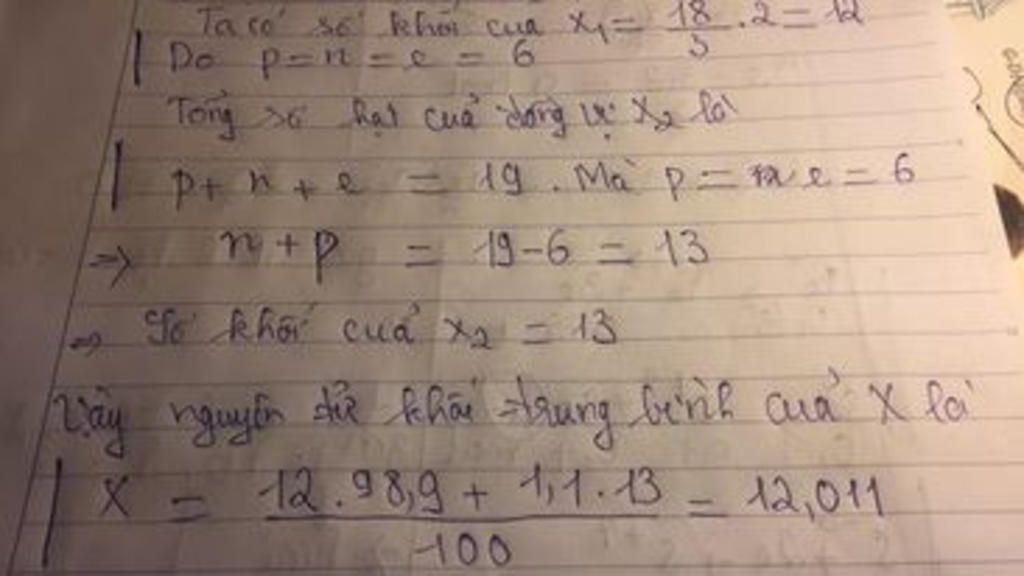 Ta có số khối của X₁ = 18/3 . 2 = 12
Do p = n = e = 6
Tổng số hạt của đồng vị X₂ là
p + n + e = 19 . Mà p = e = 6
⇒ n + p = 19 - 6 = 13
⇒ Số khối của X₂ = 13
Vậy nguyên tử khối trung bình của X là
X = (12 . 98,9 + 1,1 . 13)/100 = 12,011